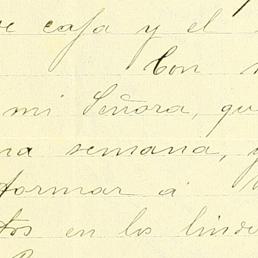 casa y el
Con
mi Señora, qu
na semana, y
formar á
tos en los linde